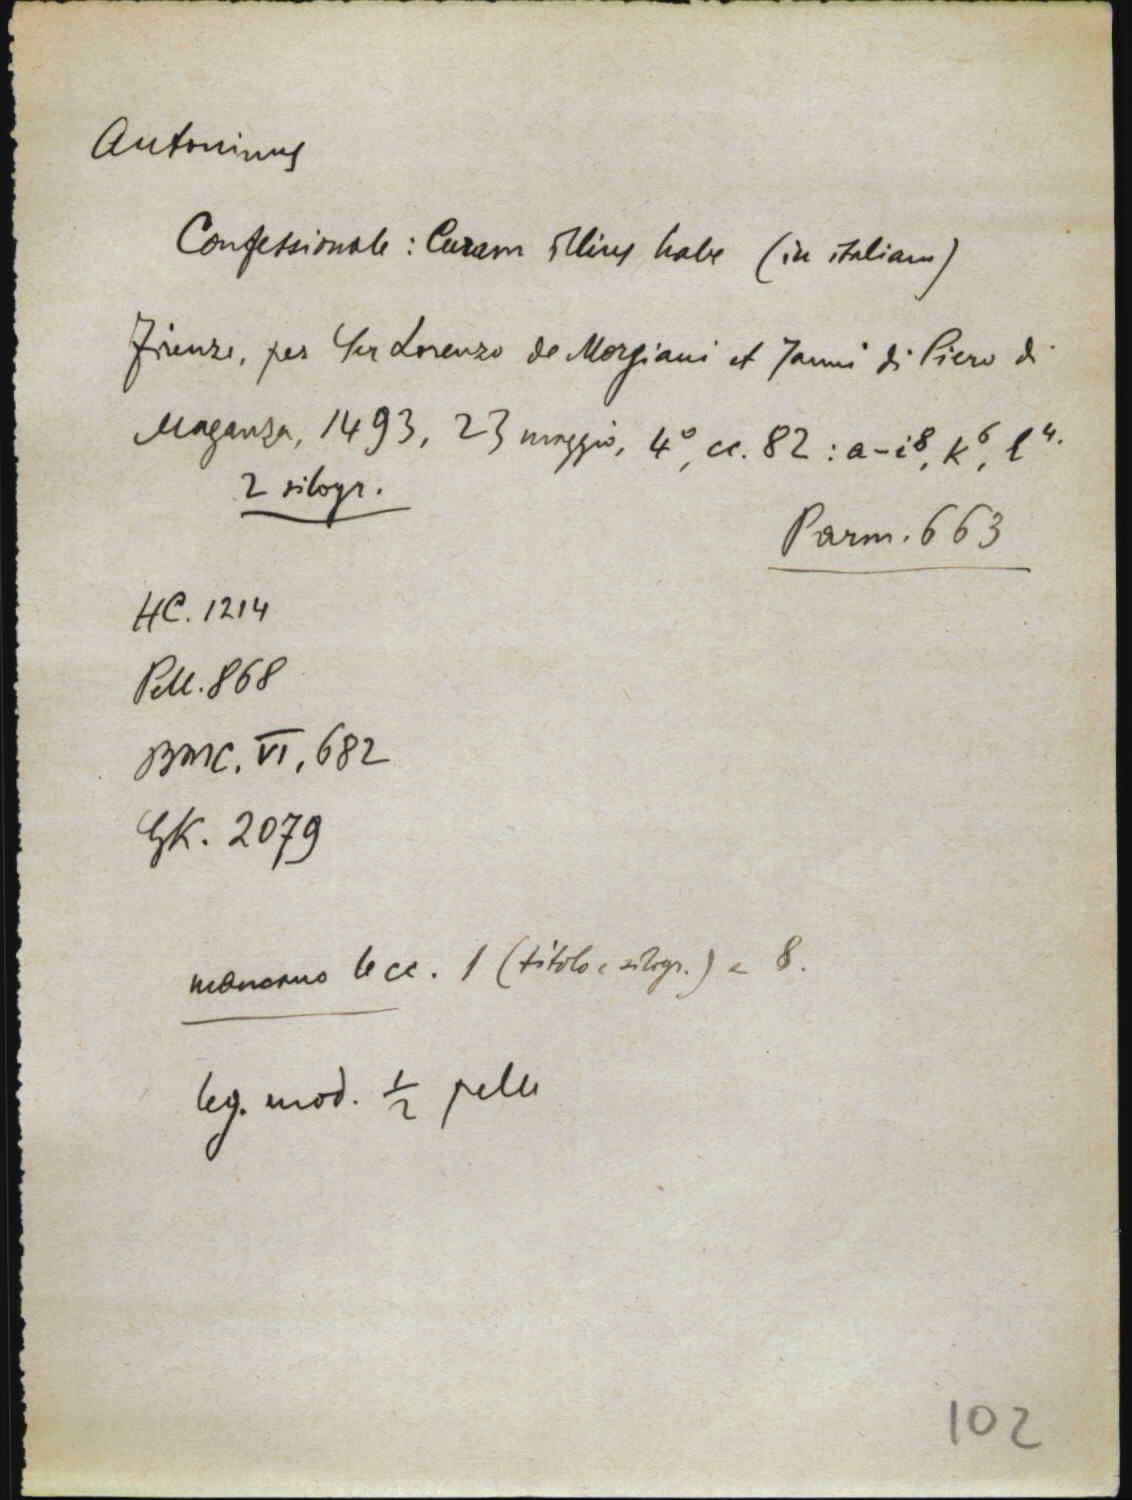 Antoninus
Confessionale: Curam illius habe (in italiano)
Firenze, per Ser Lorenzo de Morgiani et Janni di Piero di
Maganza, 1493, 23 maggio, 4°, cc. 82: a-i⁸, k⁶, l⁴.
2 silogr.
Parm. 663
HC. 1214
Pell. 868
BMC. VI, 682
GK. 2079
mancano le cc. 1 (titolo e silogr.) e 8.
leg. mod. ½ pelle
102